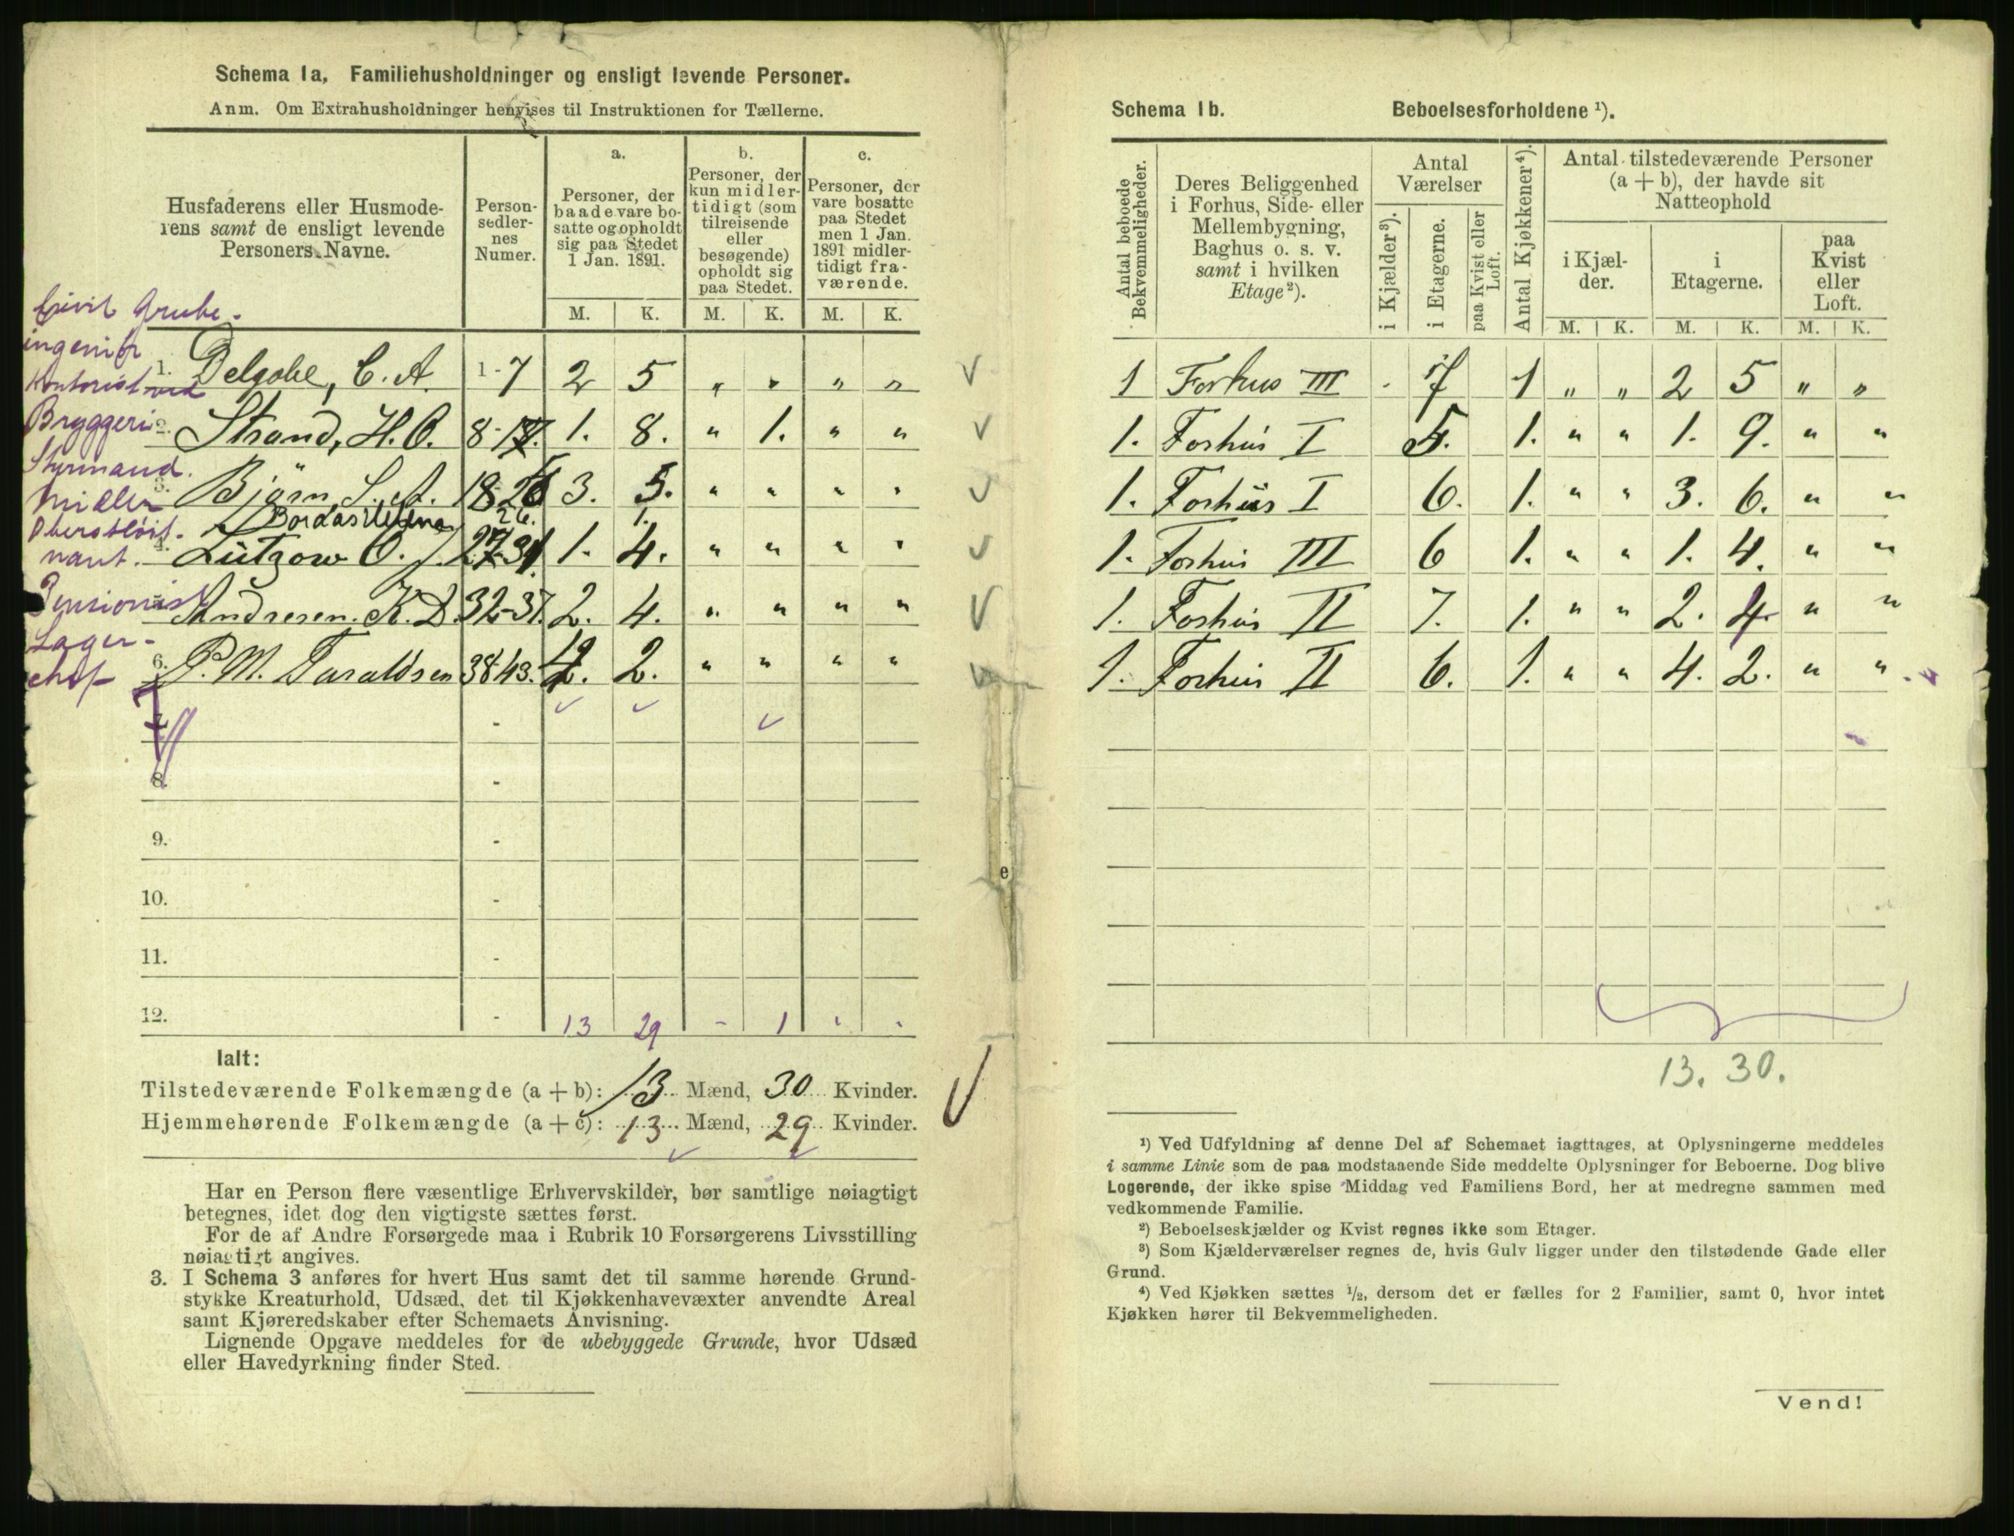 Schema 1a, Familiehusholdninger og ensligt levende Personer.
Anm. Om Extrahusholdninger henvises til Instruktionen for Tællerne.
Husfaderens eller Husmoderens samt de ensligt levende Personers Navne.
Person-sedler-nes Numer.
a. Personer, der baade vare bosatte og opholdt sig paa Stedet 1 Jan. 1891.
b. Personer, der kun midlertidigt (som tilreisende eller besøgende) opholdt sig paa Stedet.
c. Personer, der vare bosatte paa Stedet men 1 Jan. 1891 midlertidigt fraværende.
M. K. M. K. M. K.
Civil Grube-
ingeniør
1. Delgobe, C. A. 1-7 2 5 „ „ „ „
Kontorist ved
Bryggeri
2. Strand, H. O. 8-17. 1. 8. „ 1. „ „
Styrmand.
3. Bjørn, S. A. 18-26 3. 5. „ „ „ „
Oberstløit-
nant.
4. Lützow O. J. 27-31. 1. 4. „ „ „ „
Pensionist
5. Andresen. K. D. 32-37. 2. 4. „ „ „ „
Lager-
chef
6. P. M. Taraldsen 38-43. 4. 2. „ „ „ „
7. -
8. -
9. -
10. -
11. -
12. - 13 29 - 1 „ „
Ialt:
Tilstedeværende Folkemængde (a + b): 13 Mænd, 30 Kvinder.
Hjemmehørende Folkemængde (a + c): 13 Mænd, 29 Kvinder.
Har en Person flere væsentlige Erhvervskilder, bør samtlige nøiagtigt
betegnes, idet dog den vigtigste sættes først.
For de af Andre Forsørgede maa i Rubrik 10 Forsørgerens Livsstilling
nøiagtigt angives.
3. I Schema 3 anføres for hvert Hus samt det til samme hørende Grund-
stykke Kreaturhold, Udsæd, det til Kjøkkenhavevæxter anvendte Areal
samt Kjøreredskaber efter Schemaets Anvisning.
Lignende Opgave meddeles for de ubebyggede Grunde, hvor Udsæd
eller Havedyrkning finder Sted.
Schema 1b. Beboelsesforholdene ¹).
Antal beboede Bekvemmeligheder.
Deres Beliggenhed i Forhus, Side- eller Mellembygning, Baghus o. s. v. samt i hvilken Etage²).
Antal Værelser
i Kjælder³).
i Etagerne.
paa Kvist eller Loft.
Antal Kjøkkener⁴).
Antal tilstedeværende Personer (a + b), der havde sit Natteophold
i Kjælder.
i Etagerne.
paa Kvist eller Loft.
M. K. M. K. M. K.
1 Forhus III - 7 1 „ „ 2 5 „ „
1. Forhus I 5. 1. „ „ 1. 9. „ „
1. Forhus I 6. 1. „ „ 3. 6. „ „
1. Forhus III 6 1. „ „ 1. 4. „ „
1. Forhus II 7. 1. „ „ 2. 4. „ „
1. Forhus II 6. 1. „ „ 4. 2. „ „
13. 30.
¹) Ved Udfyldning af denne Del af Schemaet iagttages, at Oplysningerne meddeles
i samme Linie som de paa modstaaende Side meddelte Oplysninger for Beboerne. Dog blive
Logerende, der ikke spise Middag ved Familiens Bord, her at medregne sammen med
vedkommende Familie.
²) Beboelseskjælder og Kvist regnes ikke som Etager.
³) Som Kjælderværelser regnes de, hvis Gulv ligger under den tilstødende Gade eller
Grund.
⁴) Ved Kjøkken sættes ½, dersom det er fælles for 2 Familier, samt 0, hvor intet
Kjøkken hører til Bekvemmeligheden.
Vend!